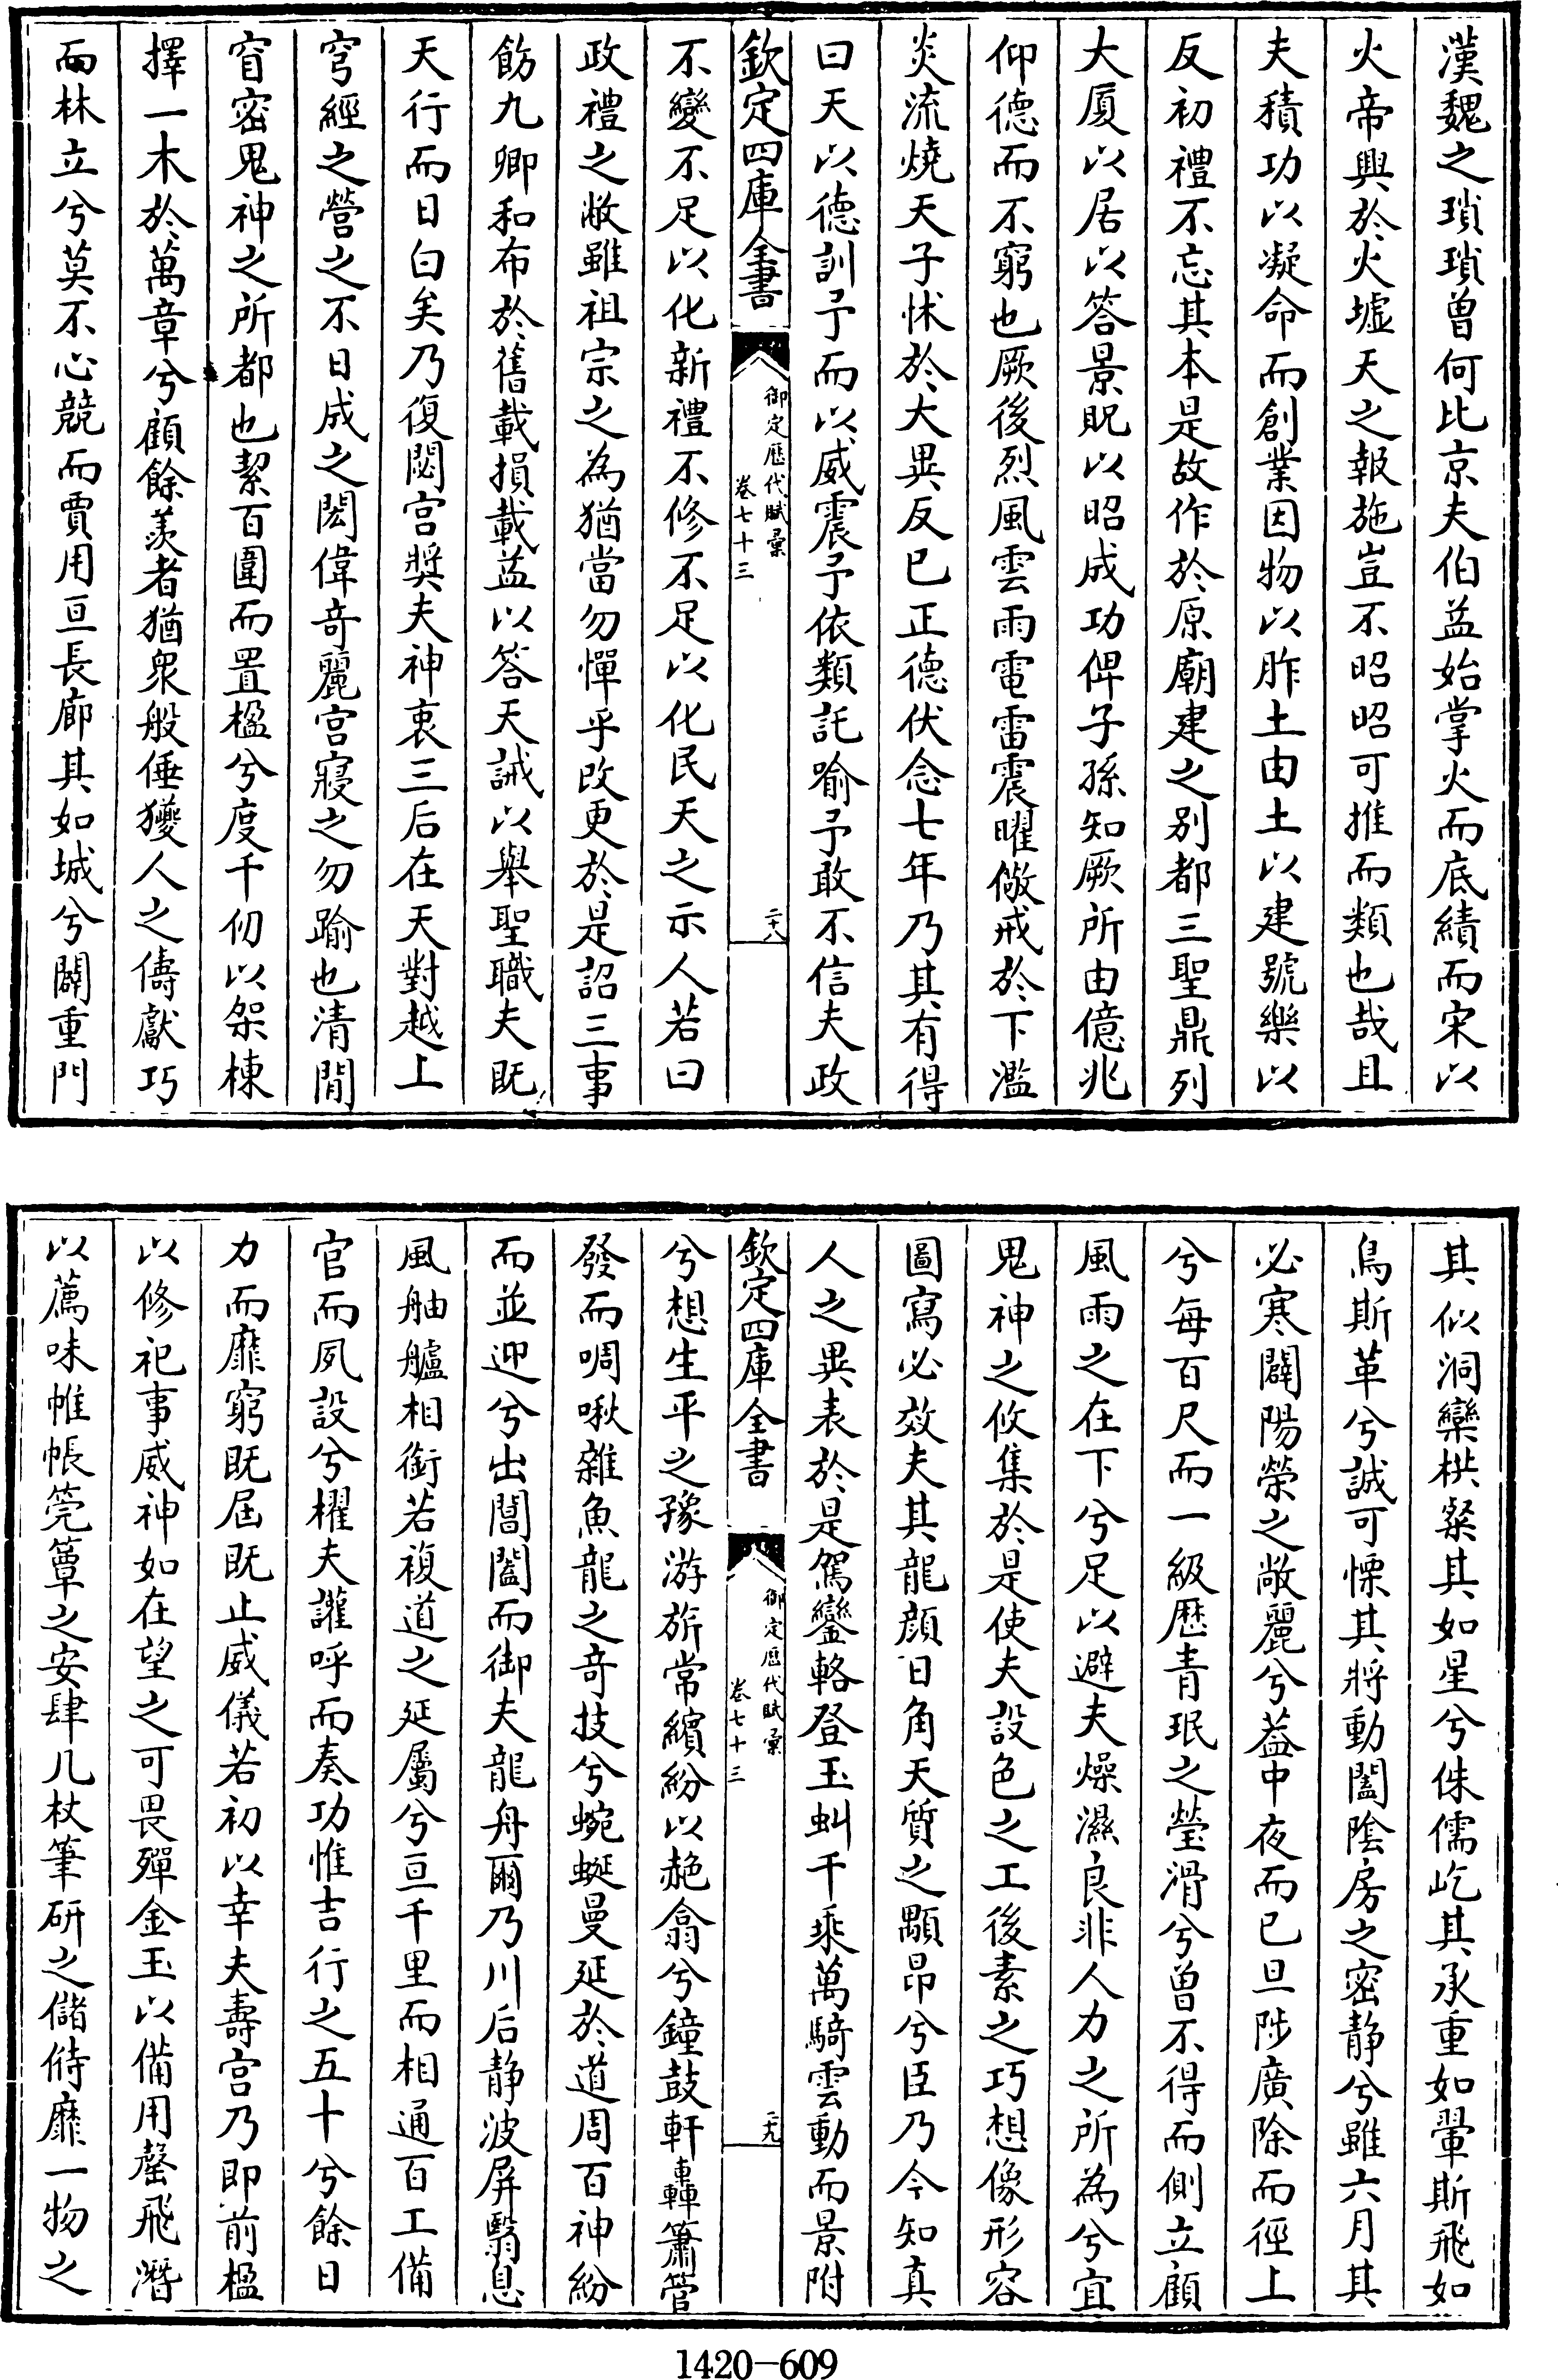 漢魏之瑣瑣曽何比京夫伯益始掌火而底績而宋以
火帝興於火墟天之報施豈不昭昭可推而類也哉且
夫積功以凝命而創業因物以胙土由土以建號樂以
反初禮不忘其本是故作於原廟建之别都三聖鼎列
大厦以居以答景貺以昭成功俾子孫知厥所由億兆
仰德而不窮也厥後烈風雲雨電雷震曜儆戒於下濫
炎流燒天子怵於大異反已正德伏念七年乃其有得
曰天以德訓予而以威震予依類託喻予敢不信夫政
欽定四庫全書
御定歴代賦彙
卷七十三
二十八
不變不足以化新禮不修不足以化民天之示人若曰
政禮之敝雖祖宗之為猶當勿憚乎改更於是詔三事
飭九卿和布於舊載損載益以答天誡以舉聖職夫既
天行而日白矣乃復閟宫奬夫神衷三后在天對越上
穹經之營之不日成之閎偉奇麗宫寢之勿踰也清閒
窅密鬼神之所都也絜百圍而置楹兮度千仞以架棟
擇一木於萬章兮顧餘羨者猶衆般倕獿人之儔獻巧
而林立兮莫不心競而賈用亘長廊其如城兮闢重門
其似洞欒栱粲其如星兮侏儒屹其承重如翬斯飛如
鳥斯革兮誠可慄其將動闔隂房之密静兮雖六月其
必寒闢陽榮之敞麗兮葢中夜而已旦陟廣除而徑上
兮每百尺而一級歴青珉之瑩滑兮曽不得而側立顧
風雨之在下兮足以避夫燥濕良非人力之所為兮宜
鬼神之攸集於是使夫設色之工後素之巧想像形容
圖寫必效夫其龍顔日角天質之顒昂兮臣乃今知真
人之異表於是駕鑾輅登玉虬千乘萬騎雲動而景附
欽定四庫全書
御定歴代賦彙
卷七十三
二十九
兮想生平之豫游旂常繽紛以赩翕兮鐘鼓軒轟簫管
發而啁啾雜魚龍之奇技兮蜿蜒曼延於道周百神紛
而並迎兮出閶闔而御夫龍舟爾乃川后静波屏翳息
風舳艫相銜若複道之延屬兮亘千里而相通百工備
官而夙設兮櫂夫讙呼而奏功惟吉行之五十兮餘日
力而靡窮既屆既止威儀若初以幸夫壽宫乃即前楹
以修祀事威神如在望之可畏殫金玉以備用罄飛潛
以薦味帷帳筦簟之安肆几杖筆研之儲偫靡一物之
1420-609